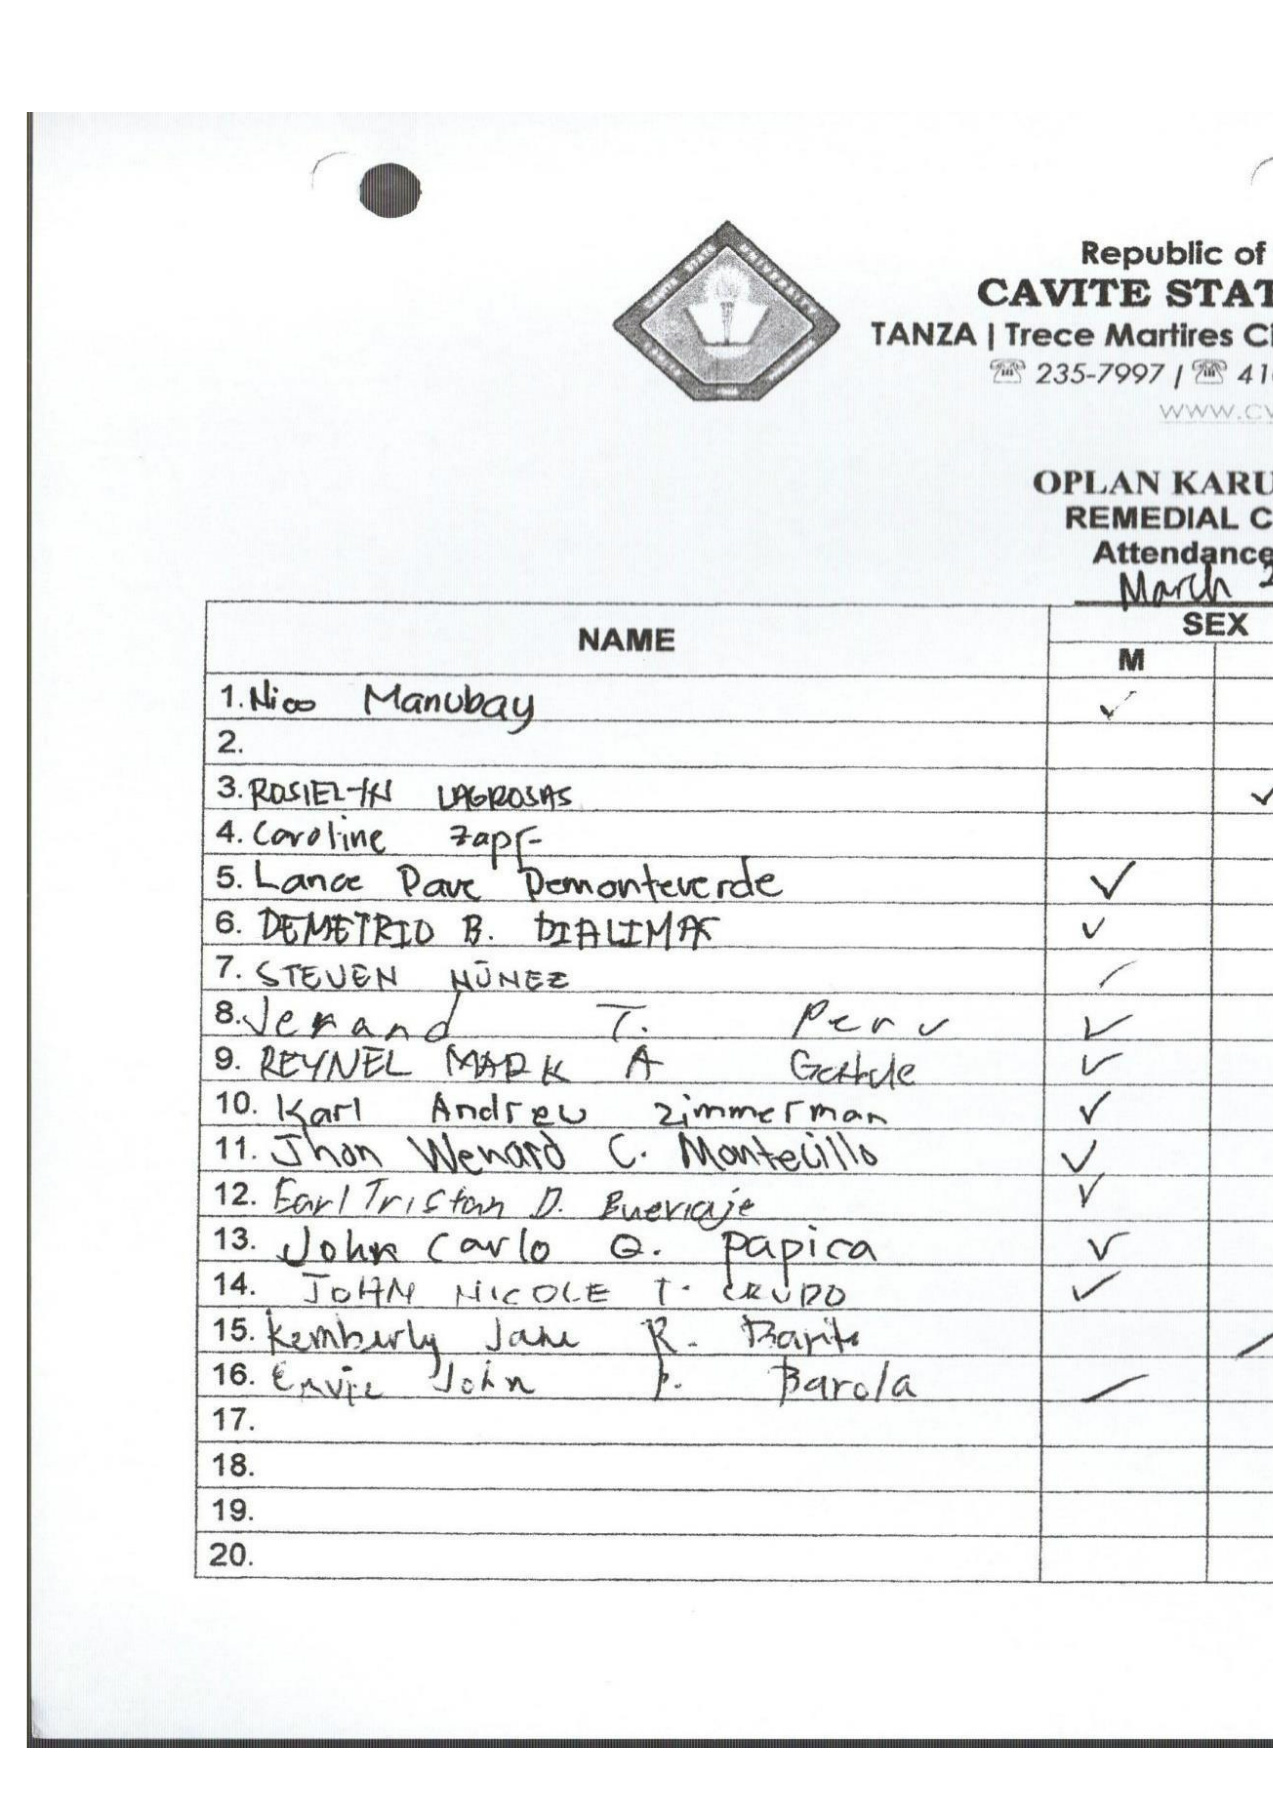 Republic of
CAVITE STAT
TANZA | Trece Martires Ci
☏ 235-7997 / ☏ 41
www.cv
OPLAN KARU
REMEDIAL C
Attendance
March
NAME SEX
M
1. Nico Manubay ✓
2.
3. ROSIEL-YN LAGROSAS ✓
4. Caroline Zapf
5. Lance Dave Demonteverde ✓
6. DEMETRIO B. DIALIMAS ✓
7. STEVEN NŪNEZ
8. Jerand T. Peru ✓
9. REYNEL MARK A ✓
10. Karl Andrew Zimmerman ✓
11. Jhon Wenard C. Montecillo ✓
12. Earl Tristan D. Bueviaje ✓
13. John Carlo Q. Papica ✓
14. JOHN NICOLE T. CRUDO ✓
15. Kemberly Jane R.
16. John P. Barola
17.
18.
19.
20.